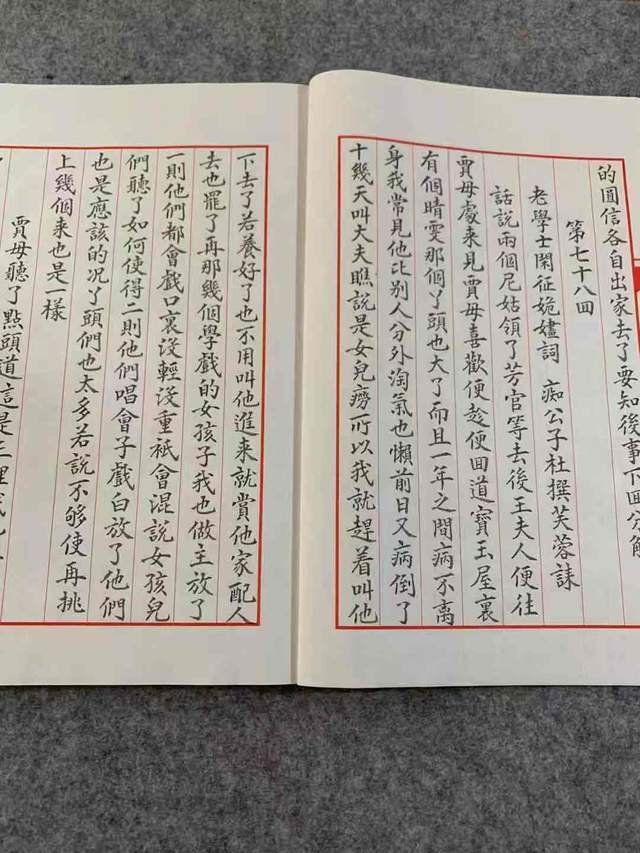 的圓信各自出家去了要知後事下回分解
第七十八回
老學士閑征姽嫿詞 痴公子杜撰芙蓉誄
話說兩個尼姑領了芳官等去後王夫人便往
賈母處来見賈母喜歡便趁便回道寶玉屋裏
有個晴雯那個丫頭也大了而且一年之間病不离
身我常見他比别人分外淘氣也懶前日又病倒了
十幾天叫大夫瞧說是女兒癆所以我就趕着叫他
下去了若養好了也不用叫他進来就賞他家配人
去也罷了再那幾個學戲的女孩子我也做主放了
一則他們都會戲口裏没輕没重衹會混說女孩兒
們聽了如何使得二則他們唱會子戲白放了他們
也是應該的况丫頭們也太多若說不够使再挑
上幾個来也是一樣
賈母聽了點頭道這是正理我